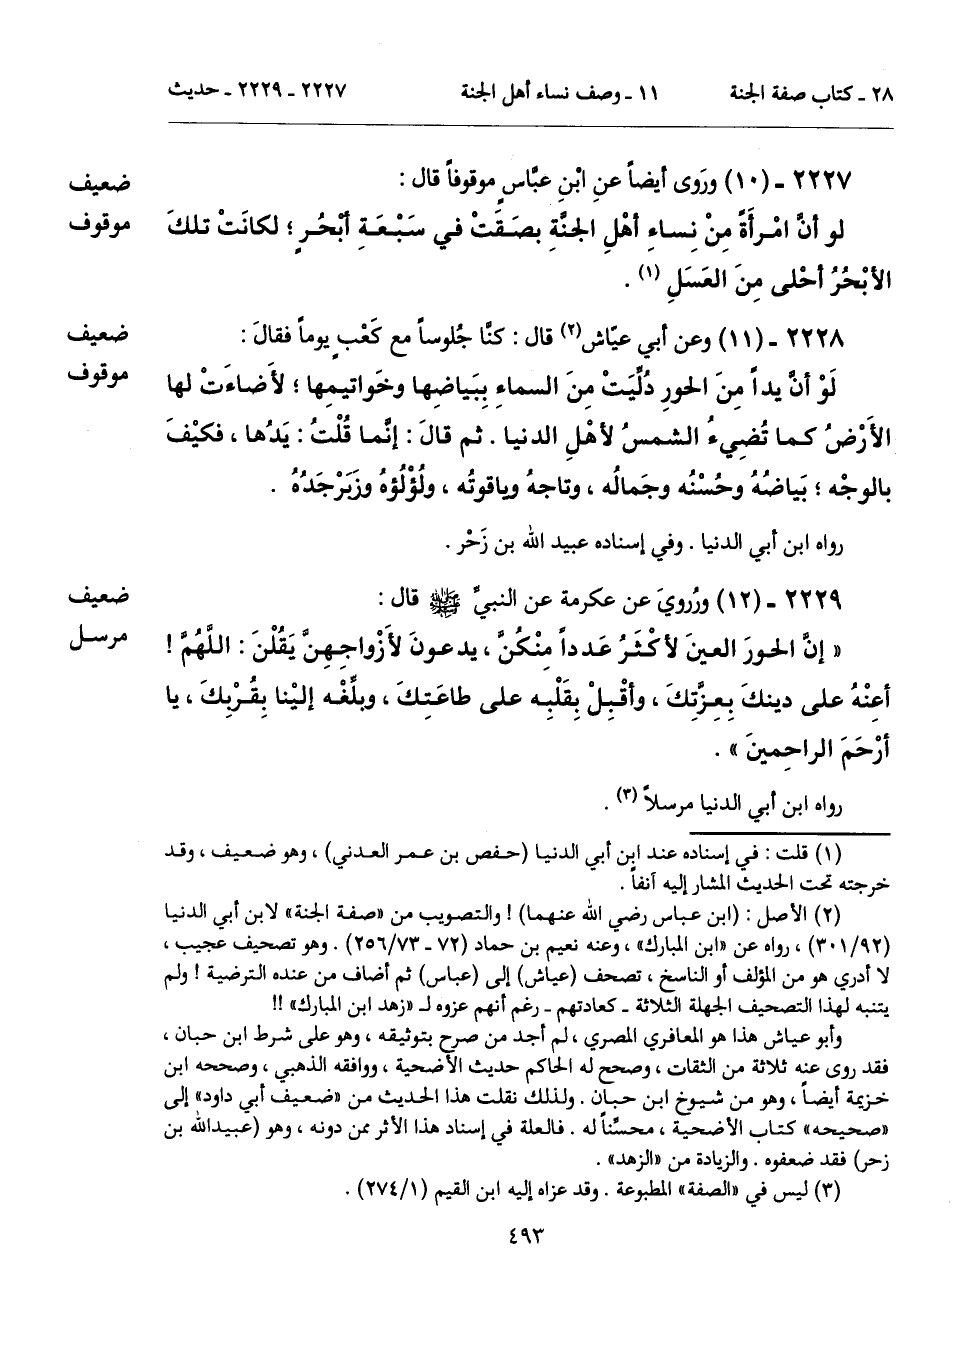 ٢٨ ـ كتاب صفة الجنة ١١ ـ وصف نساء أهل الجنة ٢٢٢٧ ـ ٢٢٢٩ ـ حديث
٢٢٢٧ ـ (١٠) ورَوى أيضاً عنِ ابْنِ عبَّاسٍ موقوفاً قال : ضعيف
لو أنَّ امْرأَةً مِنْ نِساءِ أهْلِ الجنَّةِ بصَقَتْ في سَبْعَةِ أبْحُرٍ ؛ لكانَتْ تلكَ موقوف
الأبْحُرُ أحْلى مِنَ العَسَلِ (١) .
٢٢٢٨ ـ (١١) وعن أبي عيَّاش(٢) قال : كنَّا جُلوساً مع كَعْبٍ يوماً فقالَ : ضعيف
لَوْ أنَّ يداً مِنَ الحورِ دُلِّيَتْ مِنَ السماءِ بِبَياضِها وخَواتيمِها ؛ لأَضاءَتْ لها موقوف
الأرْضُ كما تُضيءُ الشمسُ لأهْلِ الدنيا . ثم قالَ : إنَّما قُلْتُ : يَدُها ، فكيْفَ
بالوجْه ؛ بَياضُهُ وحُسْنُه وجَمالُه ، وتاجهُ وياقوتُه ، ولُؤْلُؤهُ وزَبَرْجَدُهُ .
رواه ابن أبي الدنيا . وفي إسناده عبيد الله بن زَحْر .
٢٢٢٩ ـ (١٢) ورُويَ عن عكرمة عن النبيِّ ﷺ قال : ضعيف
« إنَّ الحورَ العينَ لأكْثَرُ عَدداً منْكُنَّ ، يدعونَ لأزْواجِهِنَّ يَقُلْنَ : اللَّهُمَّ ! مرسل
أعِنْهُ على دينِكَ بِعِزَّتِكَ ، وأقْبِلْ بِقَلْبِه على طاعَتِكَ ، وبلِّغْه إليْنا بقُرْبِكَ ، يا
أرْحَمَ الراحِمينَ » .
رواه ابن أبي الدنيا مرسلاً (٣) .
(١) قلت : في إسناده عند ابن أبي الدنيا (حفص بن عمر العدني) ، وهو ضعيف ، وقد
خرجته تحت الحديث المشار إليه آنفاً .
(٢) الأصل : (ابن عباس رضي الله عنهما) ! والتصويب من «صفة الجنة» لابن أبي الدنيا
(٣٠١/٩٢) ، رواه عن «ابن المبارك» ، وعنه نعيم بن حماد (٧٢ ـ ٢٥٦/٧٣) . وهو تصحيف عجيب ،
لا أدري هو من المؤلف أو الناسخ ، تصحف (عياش) إلى (عباس) ثم أضاف من عنده الترضية ! ولم
يتنبه لهذا التصحيف الجهلة الثلاثة ـ كعادتهم ـ رغم أنهم عزوه لـ «زهد ابن المبارك» !!
وأبو عياش هذا هو المعافري المصري ، لم أجد من صرح بتوثيقه ، وهو على شرط ابن حبان ،
فقد روى عنه ثلاثة من الثقات ، وصحح له الحاكم حديث الأضحية ، ووافقه الذهبي ، وصححه ابن
خزيمة أيضاً ، وهو من شيوخ ابن حبان . ولذلك نقلت هذا الحديث من «ضعيف أبي داود» إلى
«صحيحه» كتاب الأضحية ، محسِّناً له . فالعلة في إسناد هذا الأثر ممن دونه ، وهو (عبيدالله بن
زحر) فقد ضعفوه . والزيادة من «الزهد» .
(٣) ليس في «الصفة» المطبوعة . وقد عزاه إليه ابن القيم (٢٧٤/١) .
٤٩٣